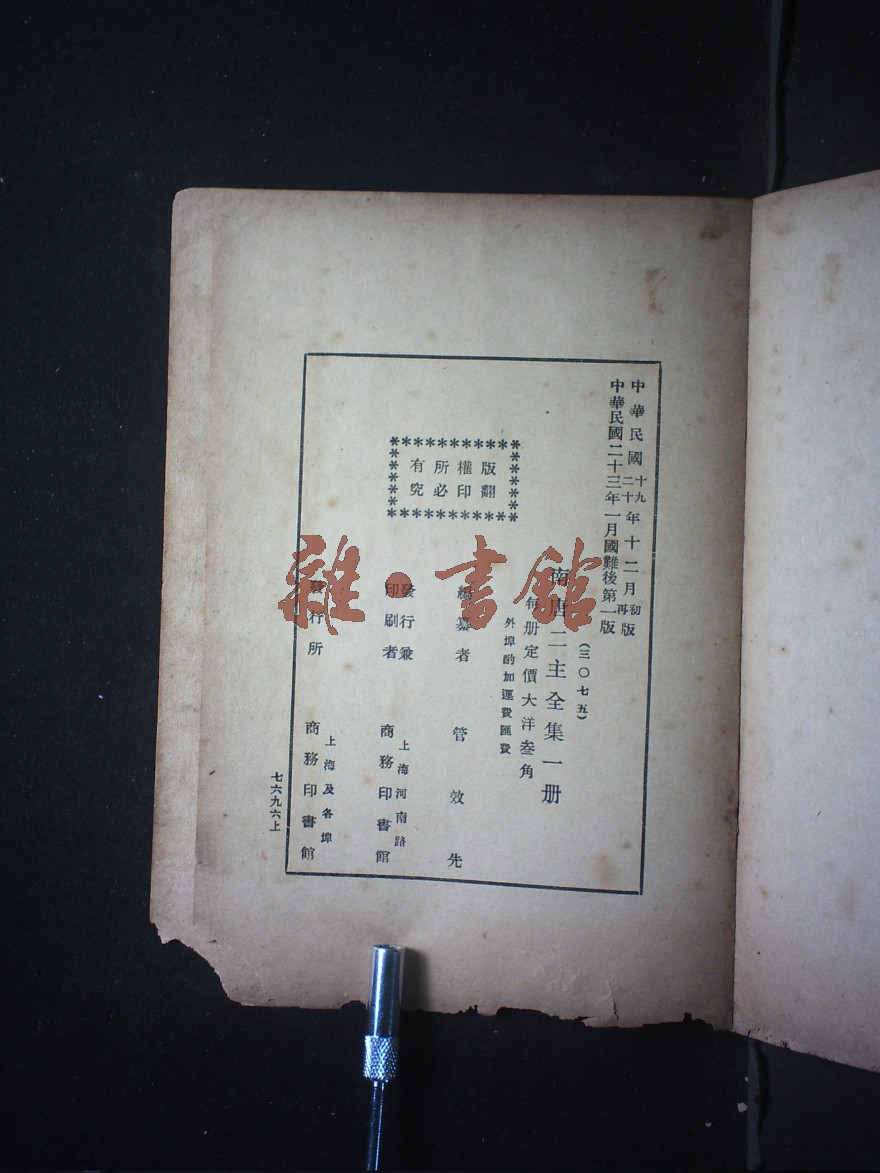 中華民國十九年十二月初版
二十 再
中華民國二十三年一月國難後第一版
(三〇七五)
南唐二主全集一册
每册定價大洋叁角
外埠酌加運費匯費
版權所有
翻印必究
編纂者 管效先
發行兼印刷者 上海河南路 商務印書館
發行所 上海及各埠 商務印書館
七六九六上
雜·書館